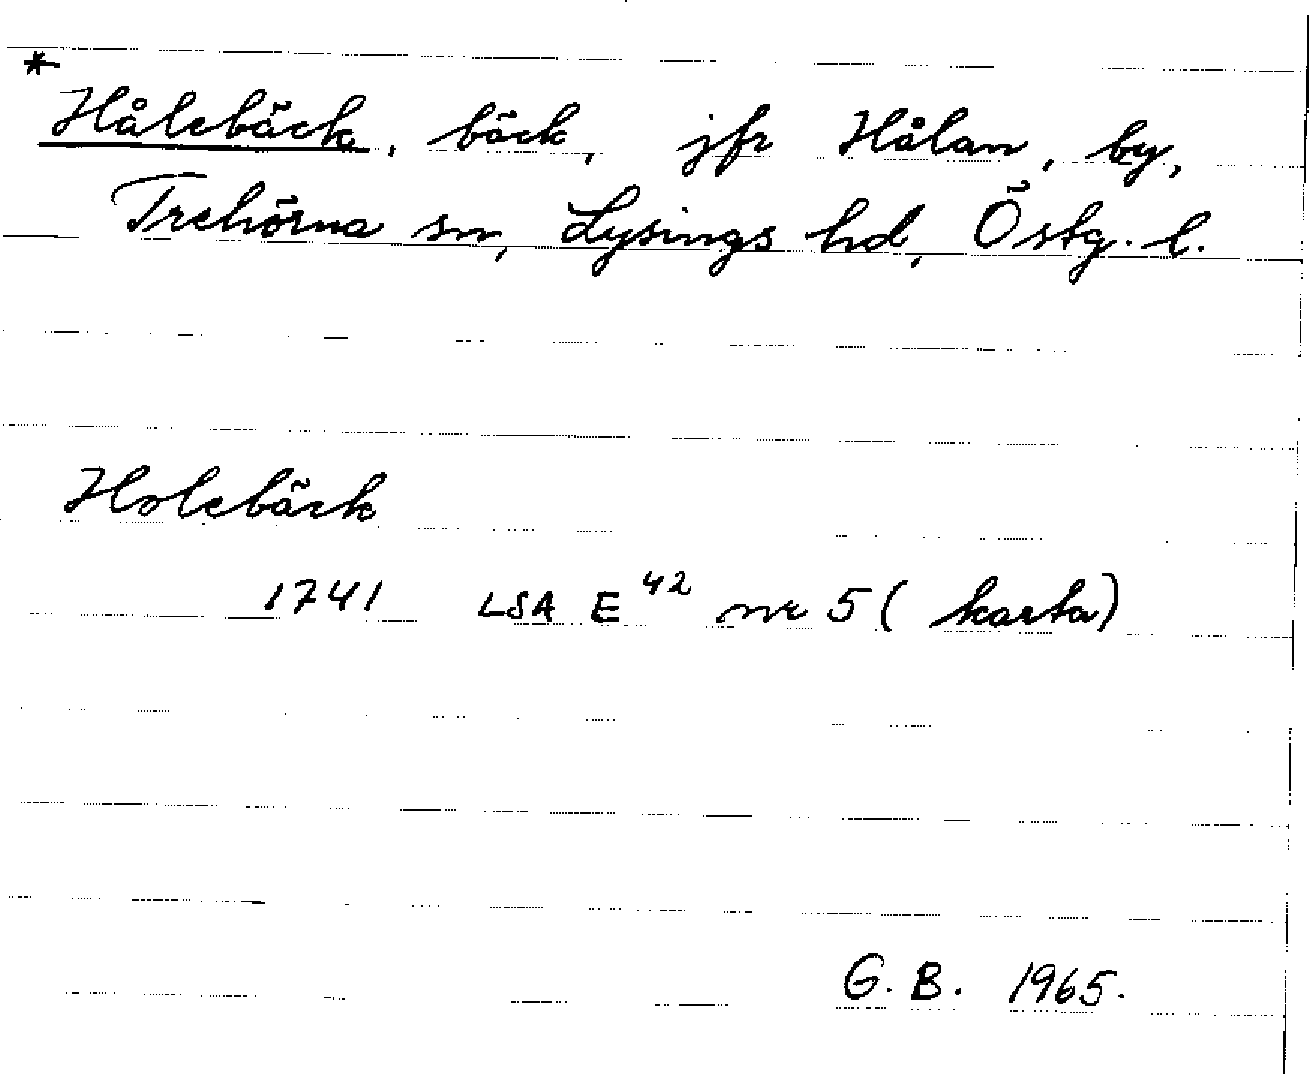 *
Hålebäck, bäck, jfr Hålan, by,
Trehörna sn, Lysings hd, Östg. l.
Holebäck
1741 LSA E 42 nr 5 (karta)
G. B. 1965.